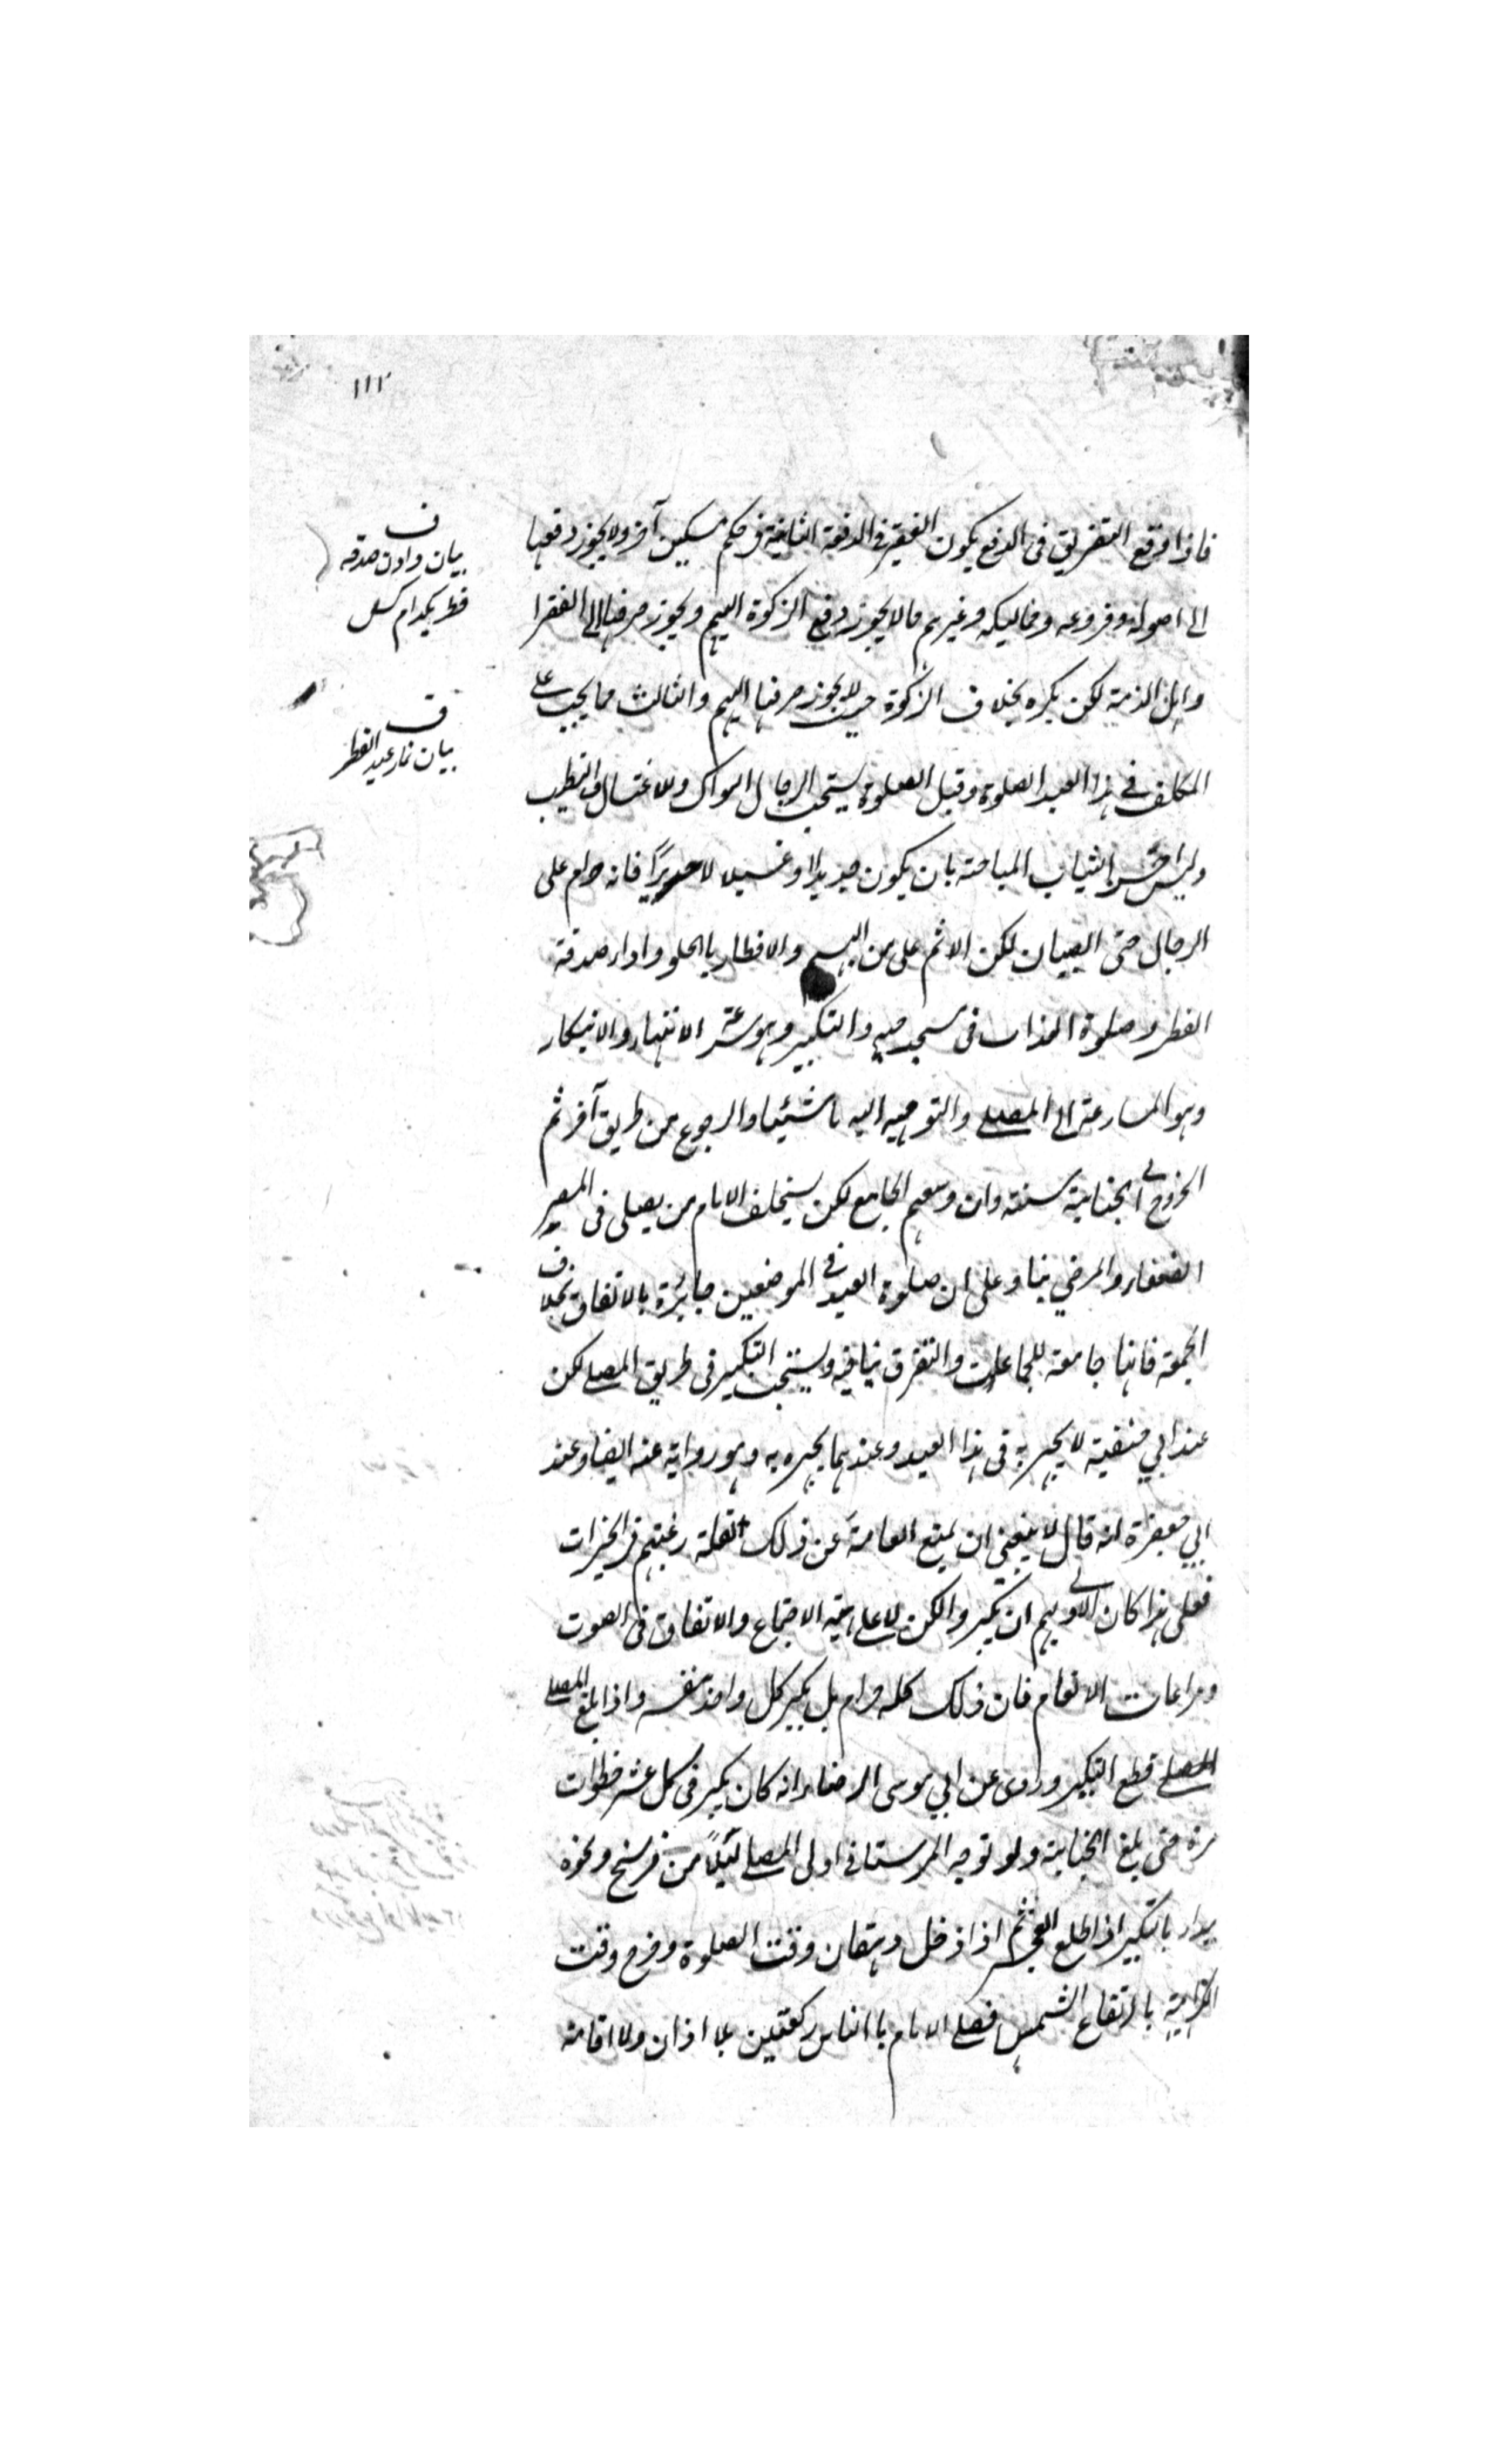 ١١٢
فاذا وقع التفريق فى الدفع يكون الفقير فى الدفعة الثانية فى حكم مسكين آخر ولا يجوز دفعها
الى اصوله وفروعه ومماليكه وغيرهم مما لا يجوز دفع الزكوة اليهم ويجوز صرفها الى الفقرا
واهل الذمة لكن يكره بخلاف الزكوة حيث لا يجوز صرفها اليهم والثالث مما يجب على
المكلف فى هذا العيد الصلوة وقبل الصلوة يستحب للرجال السواك والاغتسال والتطيب
ولبس احسن الثياب المباحة بان يكون جديدا او غسيلا لا حريرًا فانه حرام على
الرجال حتى الصبيان لكن الاثم على من البسهم والافطار بالحلو واداء صدقة
الفطر وصلوة الغداة فى مسجد حيه والتبكير وهو سرعة الانتباه والابتكار
وهو المسارعة الى المصلى والتوجه اليه ماشيئا والرجوع من طريق آخر ثم
الخروج الى الجنابة سنة وان وسعهم الجامع لكن يستخلف الامام من يصلى فى المصر
الضعفاء والمرضي بناء على ان صلوة العيد فى الموضعين جائزة بالاتفاق بخلاف
الجمعة فانها جامعة للجماعات والتفرق ينافيه ويستحب التكبير فى طريق المصلى لكن
عند ابي حنيفة لا يجهر به فى هذا العيد وعندهما يجهر به وهو رواية عنه ايضا وعند
ابي جعفرة انه قال لا ينبغي ان يمنع العامة عن ذلك لقلة رغبتهم فى الخيرات
فعلى هذا كان الاولى لهم ان يكبروا لكن لا على هيئة الاجتماع والاتفاق فى الصوت
ومراعات الانغام فان ذلك كله حرام بل يكبر كل واحد بنفسه واذا بلغ المصلى
المصلى قطع التكبير وروى عن ابي موسى الرضاء انه كان يكبر فى كل عشر خطوات
مرة حتى بلغ الجنابة ولو توجه الرستاقى اولى المصلى ليلاً من فرسخ ونحوه
يبداء بالتكبير اذا طلع الفجر ثم اذا دخل وقت الصلوة وخرج وقت
الكراهية بارتفاع الشمس فصلى الامام بالناس ركعتين بلا اذان ولا اقامة
ف
بيان دادن صدقه
فطر بكدام كس
ف
بيان نماز عيد الفطر